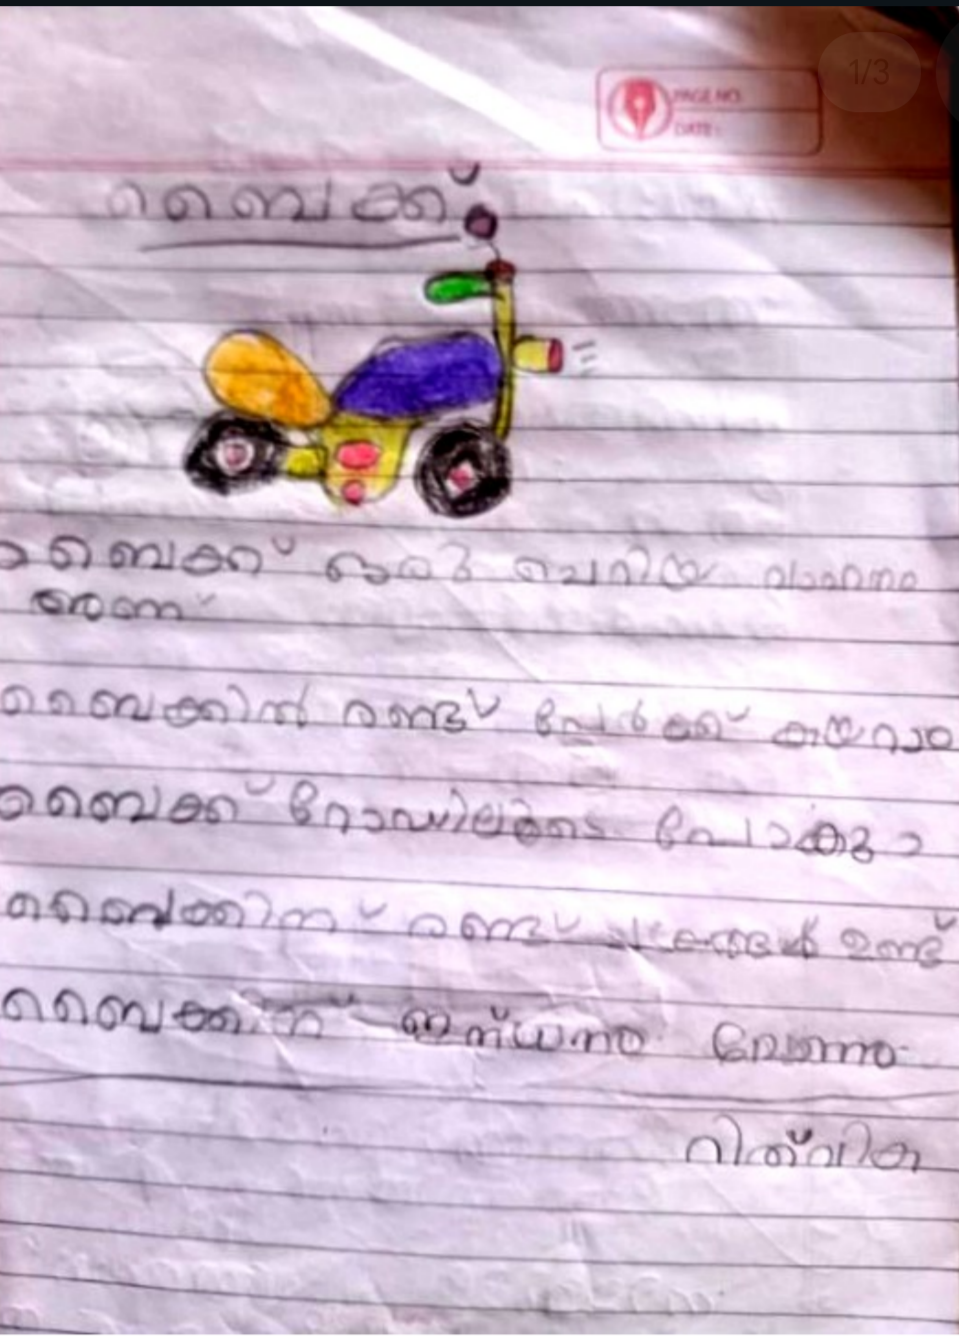 1/3
PAGE NO.
DATE:
ബൈക്ക്
ബൈക്ക് ഒരു ചെറിയ വാഹനം
ആണ്
ബൈക്കിൽ രണ്ട് പേർക്ക് കയറാം
ബൈക്ക് റോഡിലൂടെ പോകും
ബൈക്കിന് രണ്ട് ചക്രങ്ങൾ ഉണ്ട്
ബൈക്കിന് ഇന്ധനം വേണം
റിത്വിക